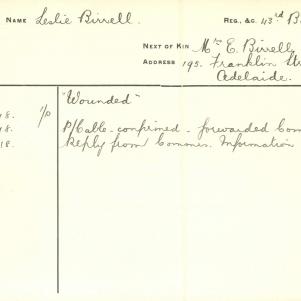 NAME Leslie Birrell. REG., &C. 43rd B
NEXT OF KIN Mrs E. Birrell,
ADDRESS 195. Franklin Str
Adelaide.
"Wounded"
8. 1/0
8. P/Cable confirmed - forwarded Com
18. Reply from Commrs. Information